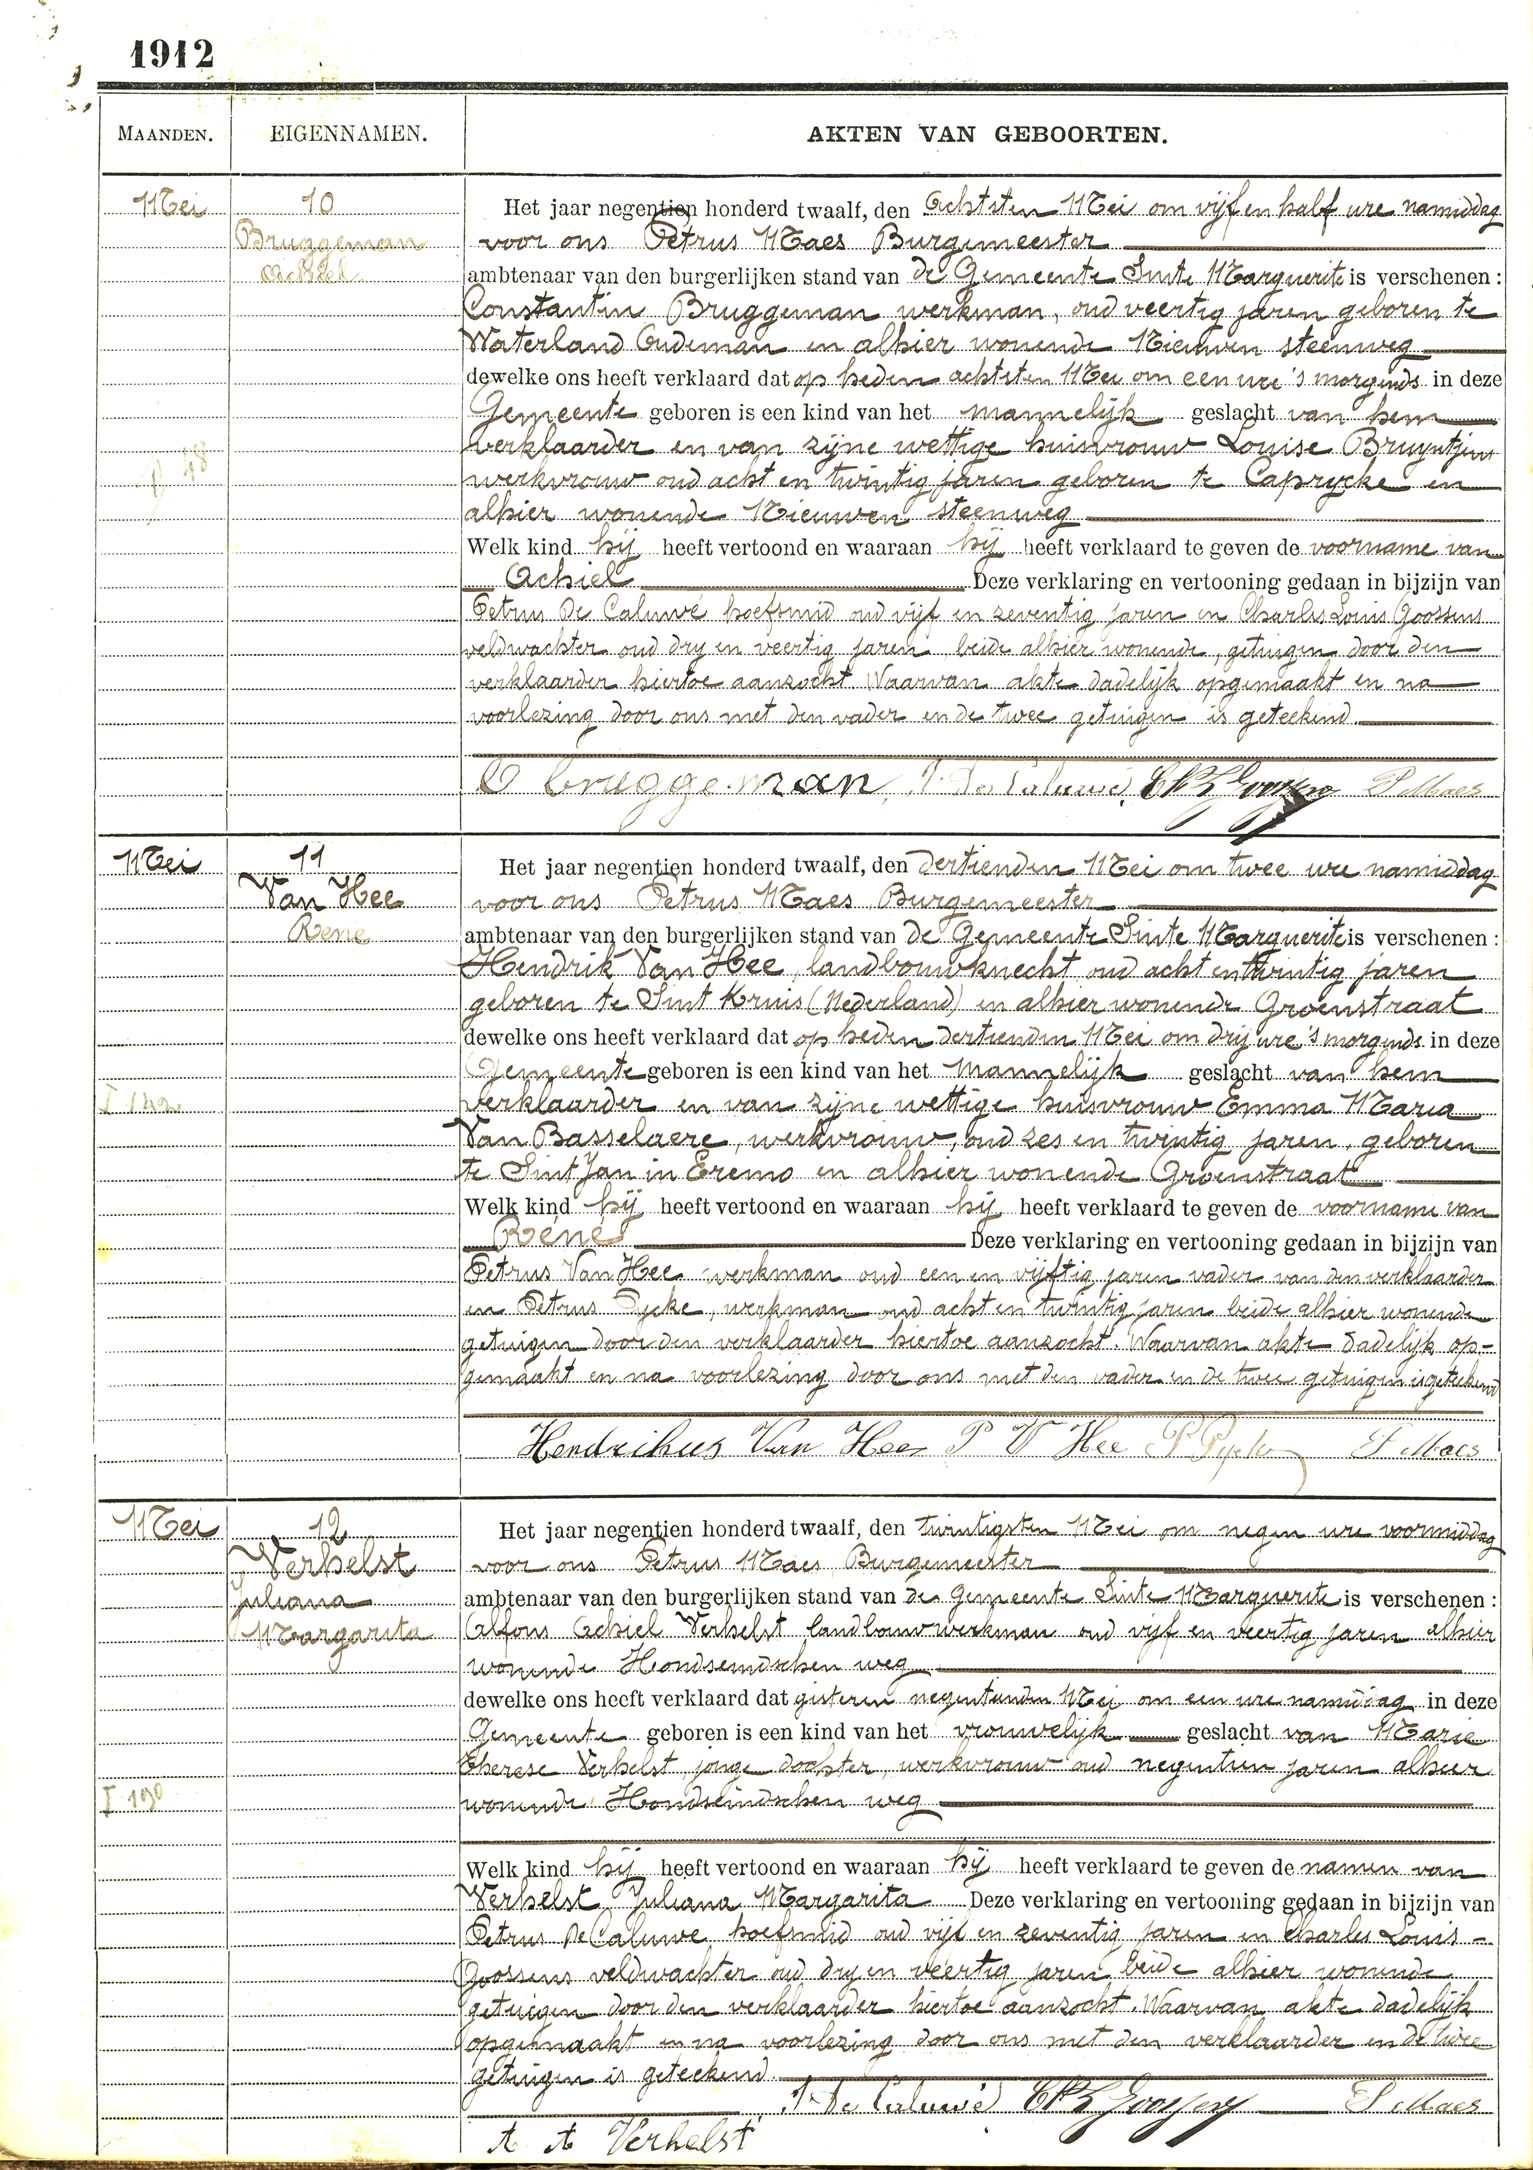 1912
MAANDEN. EIGENNAMEN. AKTEN VAN GEBOORTEN.
Mei
10
Bruggeman
Achiel
Het jaar negentien honderd twaalf, den Achtsten Mei om vijf en half ure namiddag
voor ons Petrus Maes Burgemeester
ambtenaar van den burgerlijken stand van de Gemeente Sinte Marguerite is verschenen :
Constantin Bruggeman werkman, oud veertig jaren geboren te
Waterland Oudeman en alhier wonende Nieuwen steenweg
dewelke ons heeft verklaard dat op heden achtsten Mei om een ure 's morgends in deze
Gemeente geboren is een kind van het mannelijk geslacht van hem
verklaarder en van zijne wettige huisvrouw Louise Bruyntjens
werkvrouw oud acht en twintig jaren geboren te Caprycke en
alhier wonende Nieuwen steenweg
Welk kind hij heeft vertoond en waaraan hij heeft verklaard te geven de voorname van
Achiel Deze verklaring en vertooning gedaan in bijzijn van
Petrus De Caluwé hoefsmid oud vijf en zeventig jaren en Charles Louis Goossens
veldwachter oud dry en veertig jaren, beide alhier wonende, getuigen door den
verklaarder hiertoe aanzocht Waarvan akte dadelijk opgemaakt en na
voorlezing door ons met den vader en de twee getuigen is geteekend.
48
C bruggeman, P. De Caluwé, Ch L Goossens P Maes
Mei
11
Van Hee
Rene
Het jaar negentien honderd twaalf, den dertienden Mei om twee ure namiddag
voor ons Petrus Maes Burgemeester
ambtenaar van den burgerlijken stand van de Gemeente Sinte Marguerite is verschenen :
Hendrik Van Hee, landbouwknecht oud acht en twintig jaren
geboren te Sint Kruis (Nederland) en alhier wonende Groenstraat
dewelke ons heeft verklaard dat op heden dertienden Mei om drij ure 's morgends in deze
Gemeente geboren is een kind van het mannelijk geslacht van hem
verklaarder en van zijne wettige huisvrouw Emma Maria
Van Basselaere, werkvrouw, oud zes en twintig jaren, geboren
te Sint Jan in Eremo en alhier wonende Groenstraat
Welk kind hij heeft vertoond en waaraan hij heeft verklaard te geven de voorname van
Réné Deze verklaring en vertooning gedaan in bijzijn van
Petrus Van Hee werkman oud een en vijftig jaren vader van den verklaarder
en Petrus Pycke, werkman oud acht en twintig jaren beide alhier wonende
getuigen door den verklaarder hiertoe aanzocht. Waarvan akte dadelijk op-
gemaakt en na voorlezing door ons met den vader en de twee getuigen is geteekend
I 142
Hendrikus Van Hee P V Hee P Pycke P Maes
Mei
12
Verhelst
Juliana
Margarita
Het jaar negentien honderd twaalf, den twintigsten Mei om negen ure voormiddag
voor ons Petrus Maes Burgemeester
ambtenaar van den burgerlijken stand van de gemeente Sinte Marguerite is verschenen :
Alfons Achiel Verhelst landbouwwerkman oud vijf en veertig jaren alhier
wonende Hondseindschen weg
dewelke ons heeft verklaard dat gisteren negentienden Mei om een ure namiddag in deze
Gemeente geboren is een kind van het vrouwelijk geslacht van Marie
Therese Verhelst, jonge dochter, werkvrouw oud negentien jaren alhier
wonende Hondseindschen weg
I 190
Welk kind hij heeft vertoond en waaraan hij heeft verklaard te geven de namen van
Verhelst Juliana Margarita Deze verklaring en vertooning gedaan in bijzijn van
Petrus De Caluwe hoefsmid oud vijf en zeventig jaren en Charles Louis
Goossens veldwachter oud dry en veertig jaren beide alhier wonende
getuigen door den verklaarder hiertoe aanzocht. Waarvan akte dadelijk
opgemaakt en na voorlezing door ons met den verklaarder en de twee
getuigen is geteekend.
P. De Caluwé Ch L Goossens P Maes
A A Verhelst